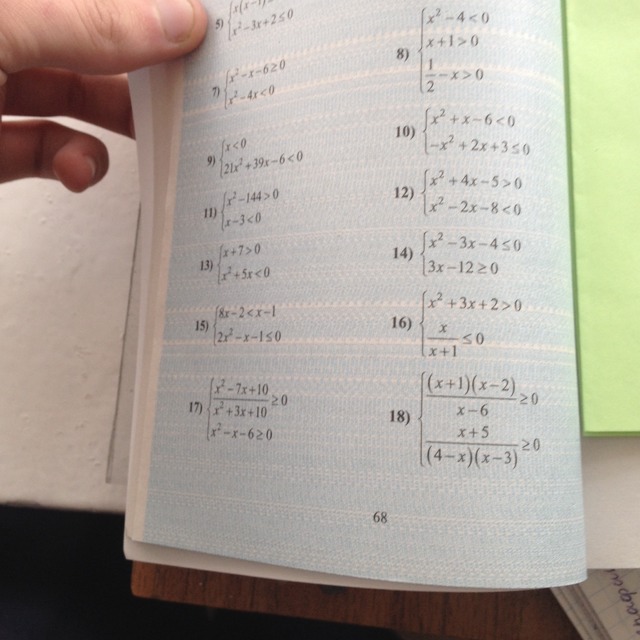 5) x²-3x+2≤0
8) x²-4<0
x+1>0
1/2-x>0
7) x²-x-6≥0
x²-4x<0
9) x<0
21x²+39x-6<0
10) x²+x-6<0
-x²+2x+3≤0
11) x²-144>0
x-3<0
12) x²+4x-5>0
x²-2x-8<0
13) x+7>0
x²+5x<0
14) x²-3x-4≤0
3x-12≥0
15) 8x-2<x-1
2x²-x-1≤0
16) x²+3x+2>0
x/(x+1)≤0
17) (x²-7x+10)/(x²+3x+10)≥0
x²-x-6≥0
18) (x+1)(x-2)/(x-6)≥0
(x+5)/((4-x)(x-3))≥0
68